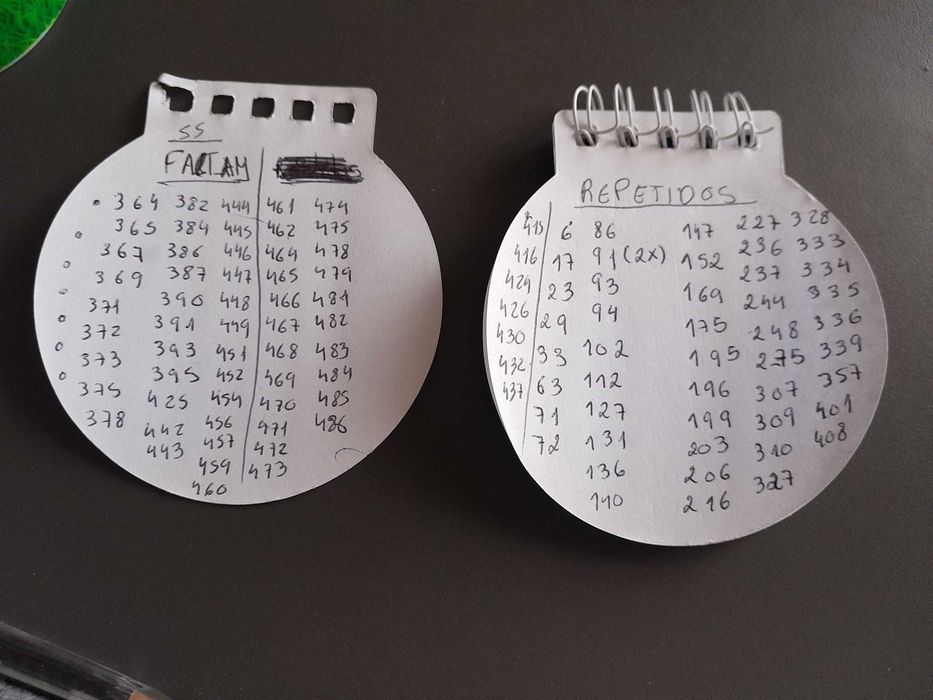 55
FALTAM
364 382 444 461 474
365 384 445 462 475
367 386 446 464 478
369 387 447 465 479
371 390 448 466 481
372 391 449 467 482
373 393 451 468 483
375 395 452 469 484
378 425 454 470 485
442 456 471 486
443 457 472
459 473
460
REPETIDOS
415 6 86 147 227 328
416 17 91 (2x) 152 236 333
424 23 93 169 237 334
426 29 94 175 244 335
430 33 102 195 248 336
432 63 112 196 275 339
437 71 127 199 307 357
72 131 203 309 401
136 206 310 408
140 216 327